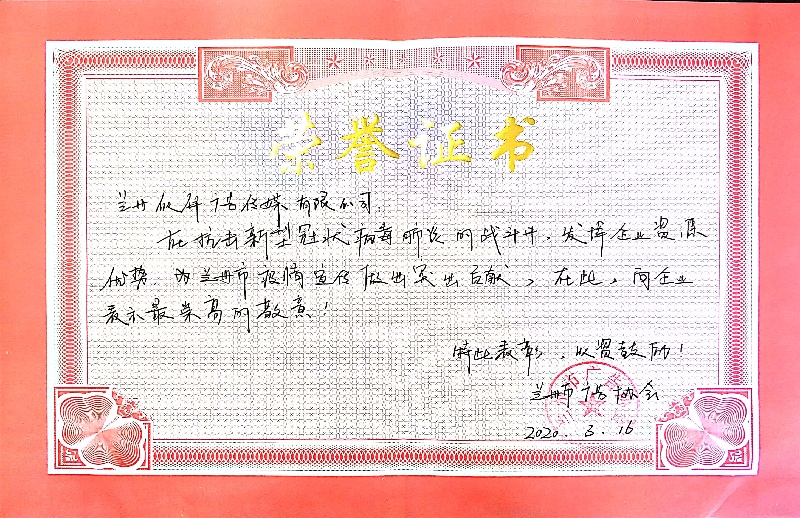 荣誉证书
兰州 广告传媒有限公司：
在抗击新型冠状病毒肺炎的战斗中，发挥企业资源
优势，为兰州市疫情宣传做出突出贡献，在此，向企业
表示最崇高的敬意！
特此表彰，以资鼓励！
兰州市广告协会
2020.3.16